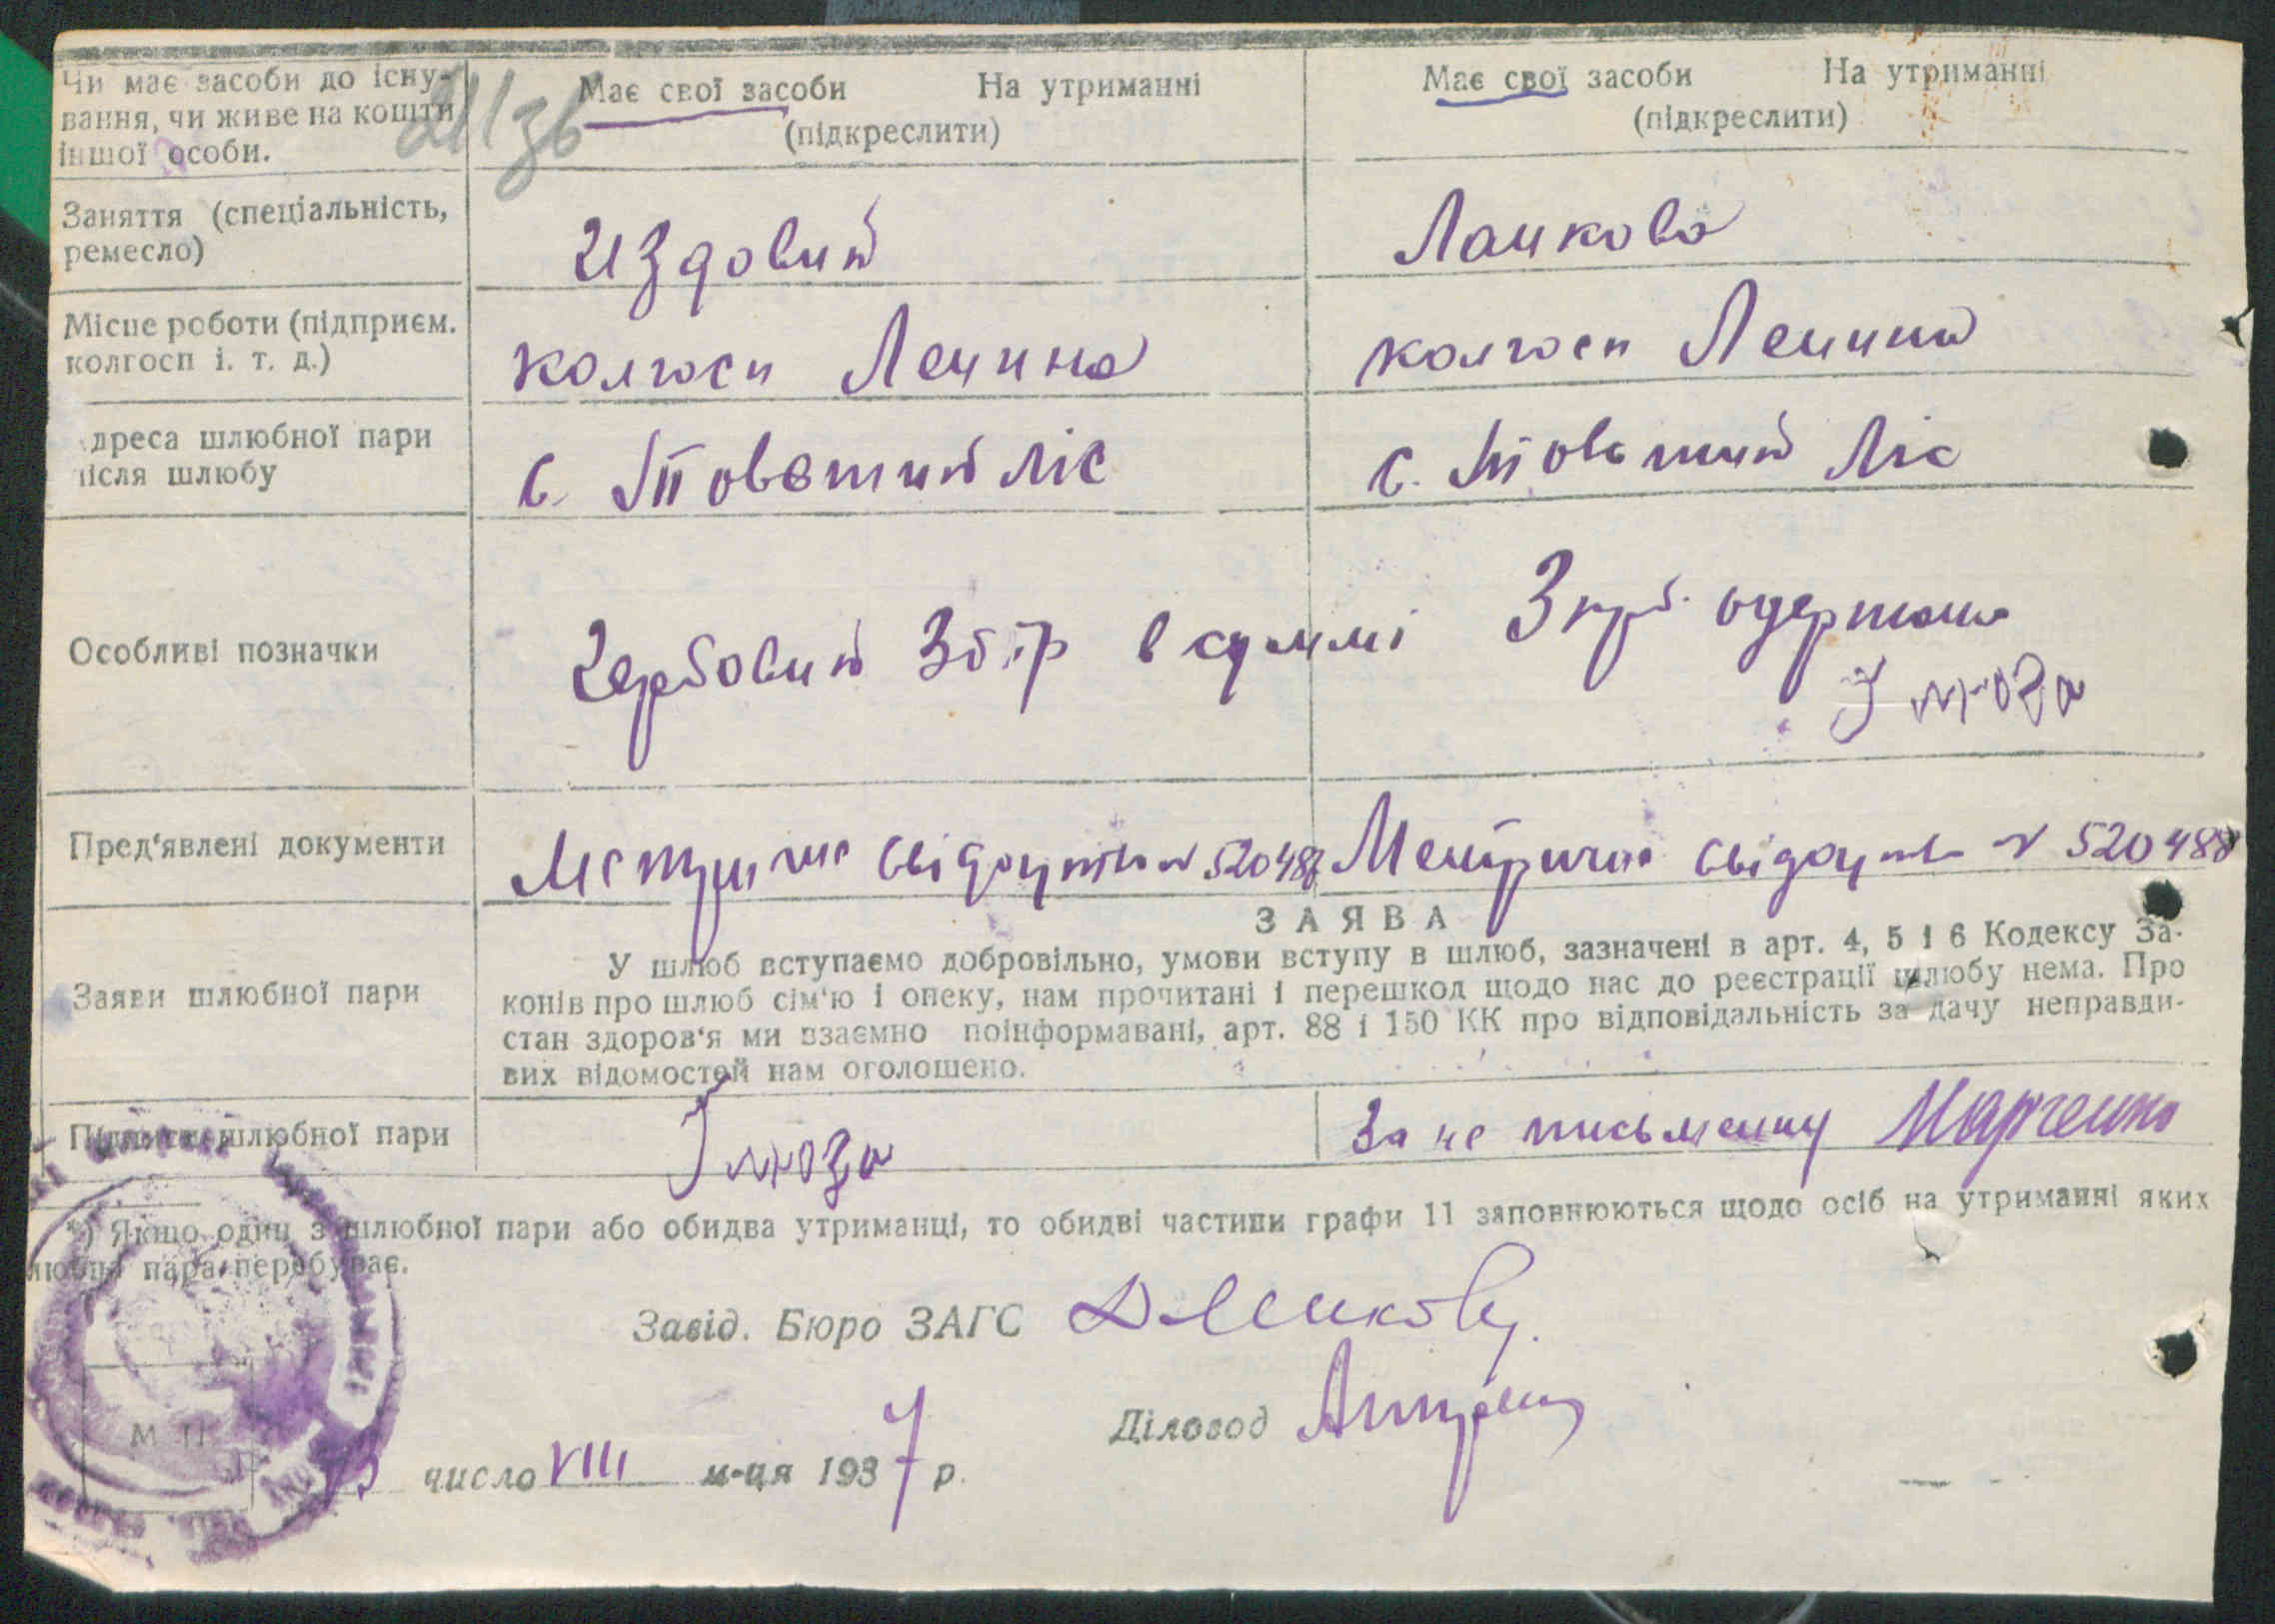 Чи має засоби до існу-
вання, чи живе на кошти
іншої особи.
Має свої засоби На утриманні
(підкреслити)
Має свої засоби На утриманні
(підкреслити)
Заняття (спеціальність,
ремесло)
Издовий
Ланкова
Місце роботи (підприєм.
колгосп і. т. д.)
колгосп Ленина
колгосп Ленина
дреса шлюбної пари
після шлюбу
с. Товстий Ліс
с. Товстий Ліс
Особливі позначки
Гербовий Збір в суммі 3 крб. одержано
Пред'явлені документи
Метричне свідоцтво 520488
Метричне свідоцтво N 520488
Заяви шлюбної пари
ЗАЯВА
У шлюб вступаємо добровільно, умови вступу в шлюб, зазначені в арт. 4, 5 і 6 Кодексу За-
конів про шлюб сім'ю і опеку, нам прочитані і перешкод щодо нас до реєстрації шлюбу нема. Про
стан здоров'я ми взаємно поінформавані, арт. 88 і 150 КК про відповідальність за дачу неправди-
вих відомостей нам оголошено.
Підписи шлюбної пари
За не письменну Марченко
*) Якщо один з шлюбної пари або обидва утриманці, то обидві частини графи 11 заповнюються щодо осіб на утриманні яких
шлюбна пара перебуває.
Завід. Бюро ЗАГС
Діловод
М П
число VIII м-ця 1937 р.